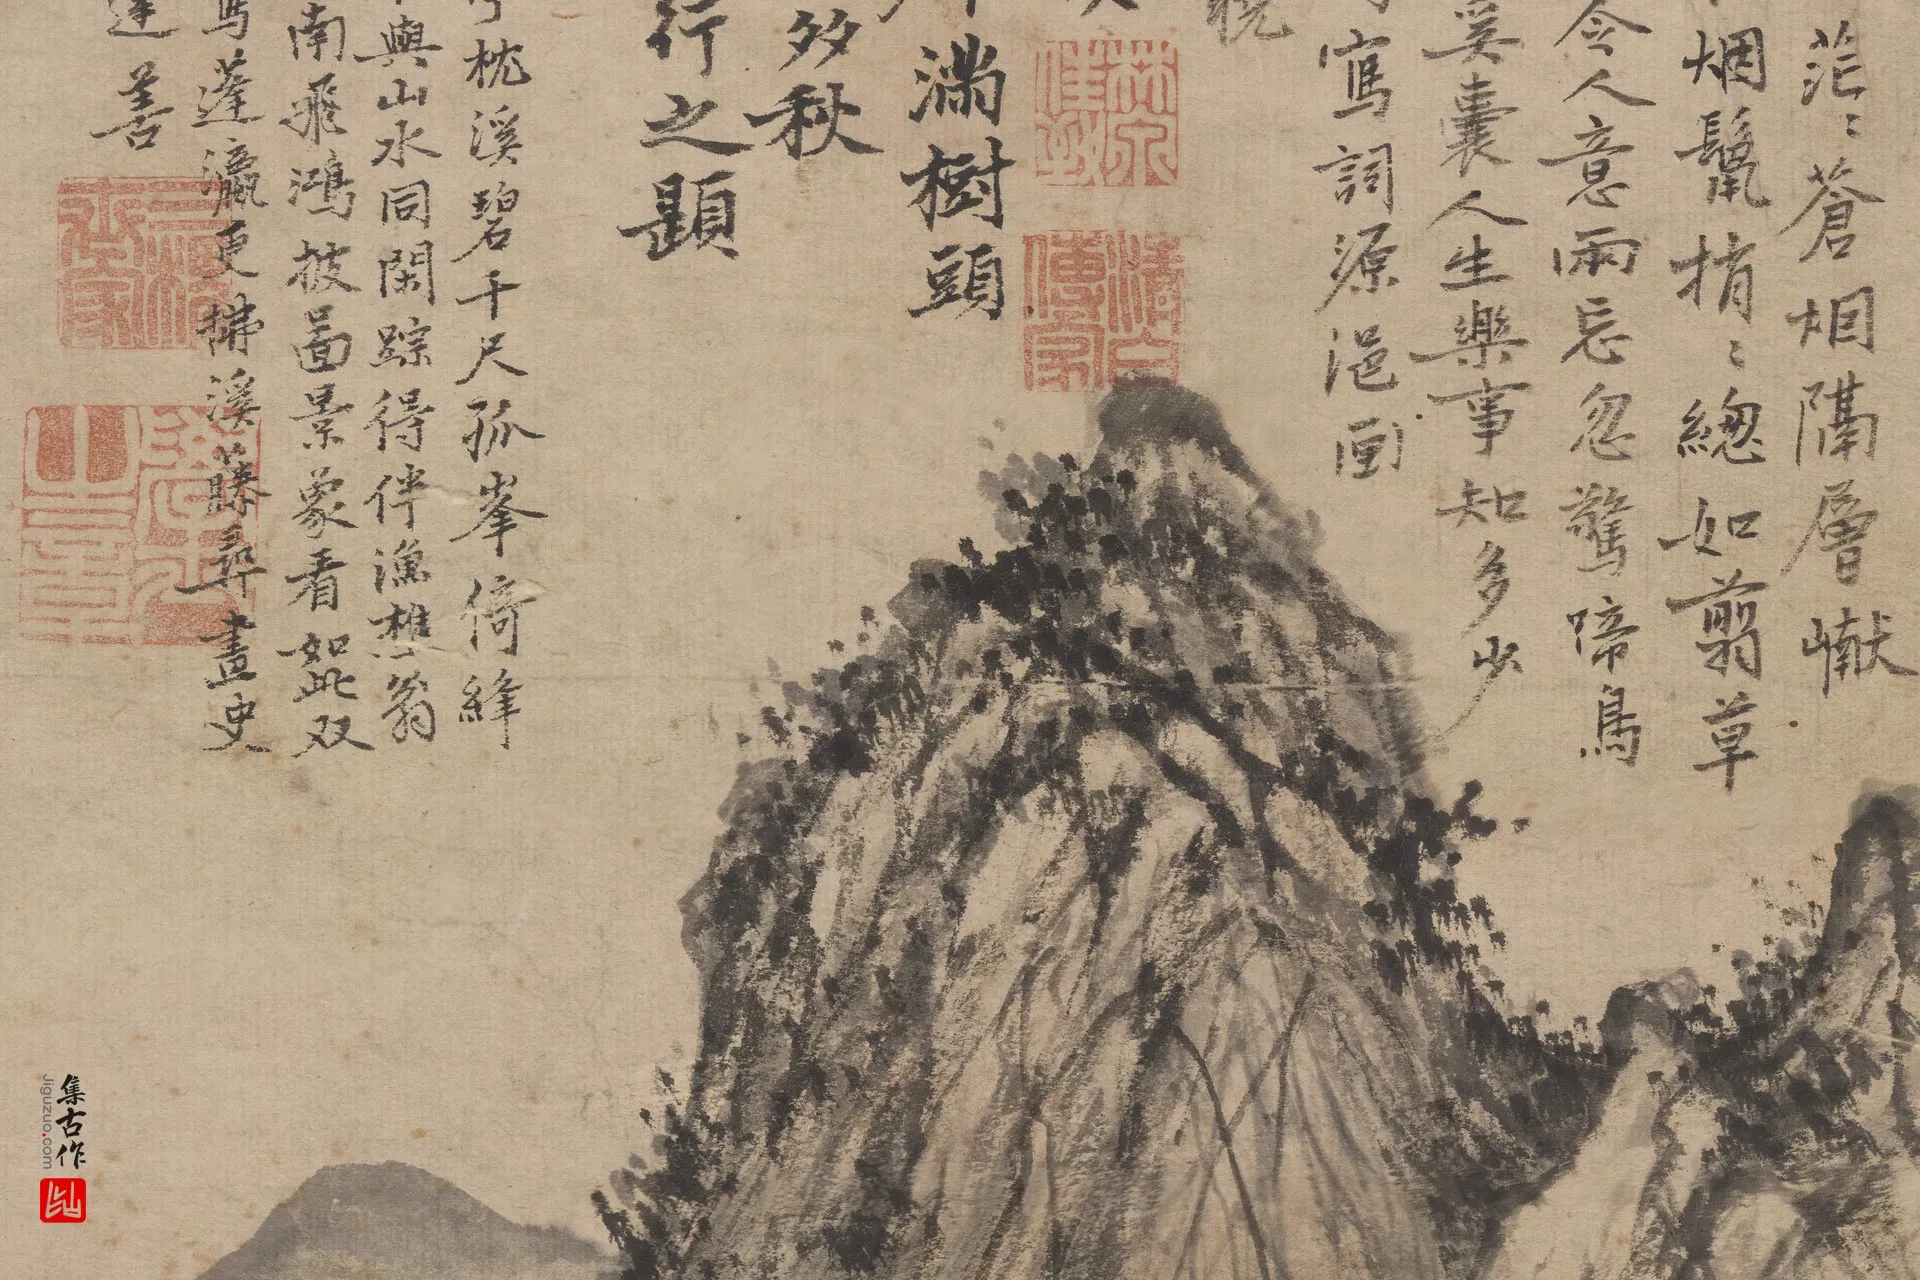 茫〻蒼烟隔層巘
烟鬟梢〻總如翦草
令人意雨忘忽驚啼鳥
奚囊人生樂事知多少
寫詞源浥画
滿樹頭
多秋
行之題
枕溪碧千尺孤峯倚絳
與山水同閑踪得伴漁樵翁
南飛鴻披畾景象看如此双
蓬瀛更拂溪藤尋畫史
達善
清白傳家
集古作
Jiguzuo.com